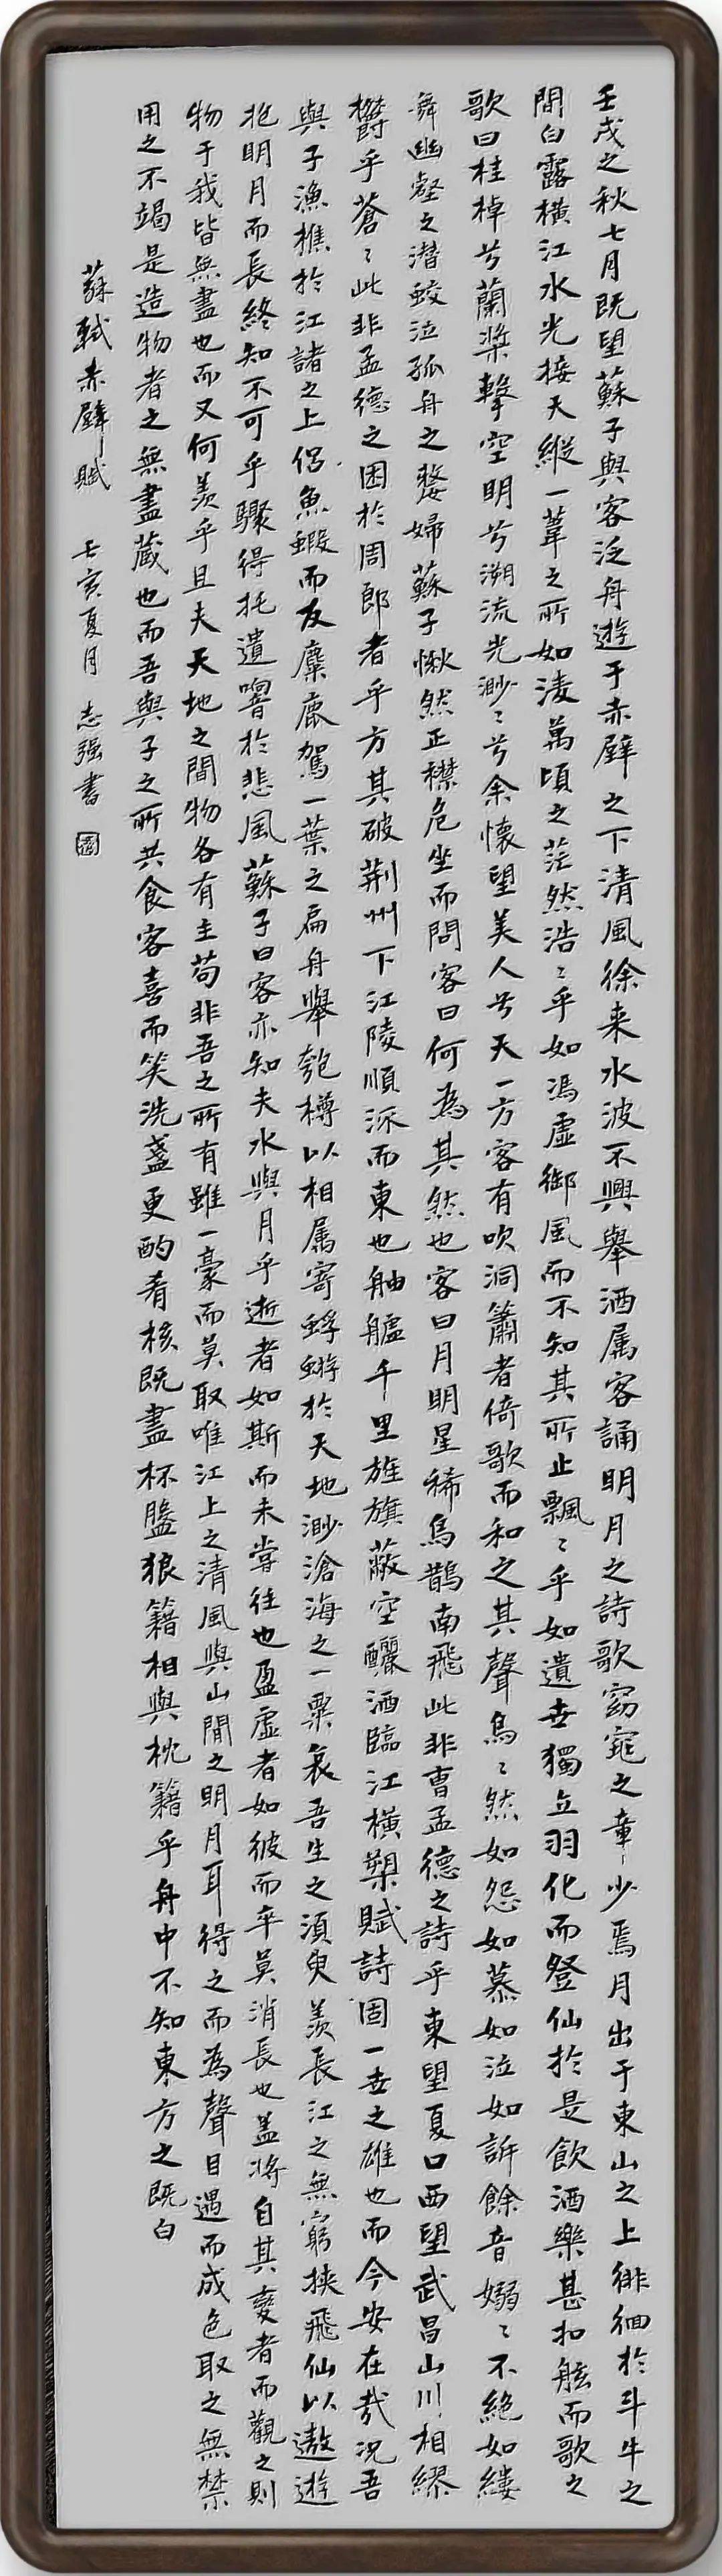 壬戌之秋七月既望蘇子與客泛舟遊于赤壁之下清風徐来水波不興舉酒属客誦明月之詩歌窈窕之章少焉月出于東山之上徘徊於斗牛之
間白露横江水光接天縱一葦之所如淩萬頃之茫然浩〻乎如馮虚御風而不知其所止飄〻乎如遺世獨立羽化而登仙於是飲酒樂甚扣舷而歌之
歌曰桂棹兮蘭槳擊空明兮溯流光渺〻兮余懷望美人兮天一方客有吹洞簫者倚歌而和之其聲烏〻然如怨如慕如泣如訴餘音嫋〻不絶如縷
舞幽壑之潜蛟泣孤舟之嫠婦蘇子愀然正襟危坐而問客曰何為其然也客曰月明星稀烏鵲南飛此非曹孟德之詩乎東望夏口西望武昌山川相繆
欝乎蒼〻此非孟德之困於周郎者乎方其破荆州下江陵順流而東也舳艫千里旌旗蔽空釃酒臨江横槊賦詩固一世之雄也而今安在哉况吾
與子漁樵於江諸之上侣魚蝦而友麋鹿駕一葉之扁舟舉匏樽以相属寄蜉蝣於天地渺滄海之一粟哀吾生之須臾羨長江之無窮挟飛仙以遨遊
抱明月而長終知不可乎驟得托遺響於悲風蘇子曰客亦知夫水與月乎逝者如斯而未嘗往也盈虚者如彼而卒莫消長也盖將自其變者而觀之則
物于我皆無盡也而又何羨乎且夫天地之間物各有主苟非吾之所有雖一豪而莫取唯江上之清風與山間之明月耳得之而為聲目遇而成色取之無禁
用之不竭是造物者之無盡藏也而吾與子之所共食客喜而笑洗盞更酌肴核既盡杯盤狼籍相與枕籍乎舟中不知東方之既白
蘇軾赤壁賦 壬寅夏月 志强書